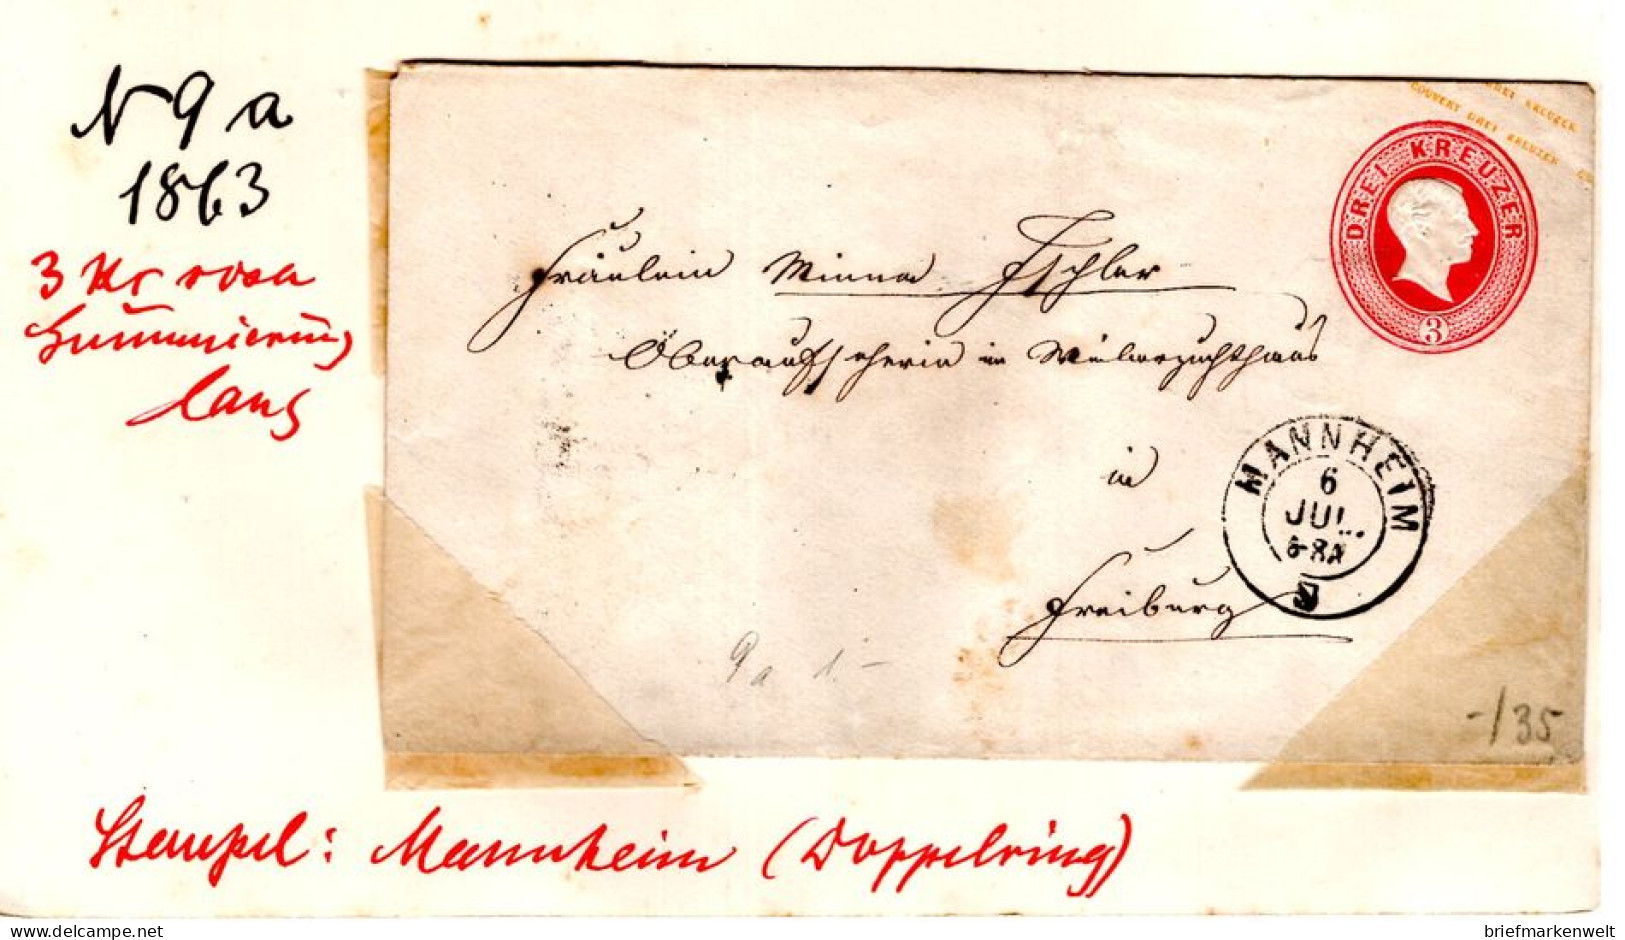 N 9 a
1863
3 Kr rosa
Gummierung
lang
DREI KREUZER
COUVERT DREI KREUZER
DREI KREUZER
3
Fräulein Minna
Oberaufseherin im Weiberzuchthaus
in
Freiburg
MANNHEIM
6
JUL.
6-8A
9a 1.-
-/35
Stempel: Mannheim (Doppelring)
delcampe.net
briefmarkenwelt